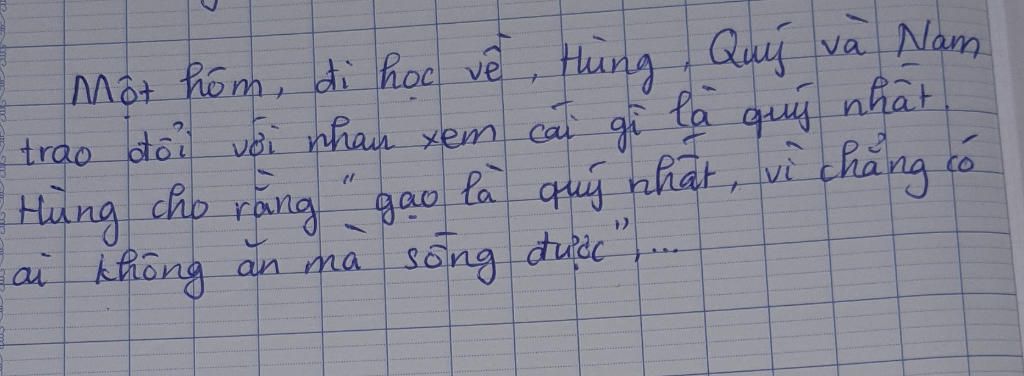 Một hôm, đi học về, Hùng, Quý và Nam
trao đổi với nhau xem cái gì là quý nhất.
Hùng cho rằng "gạo là quý nhất, vì chẳng có
ai không ăn mà sống được",...